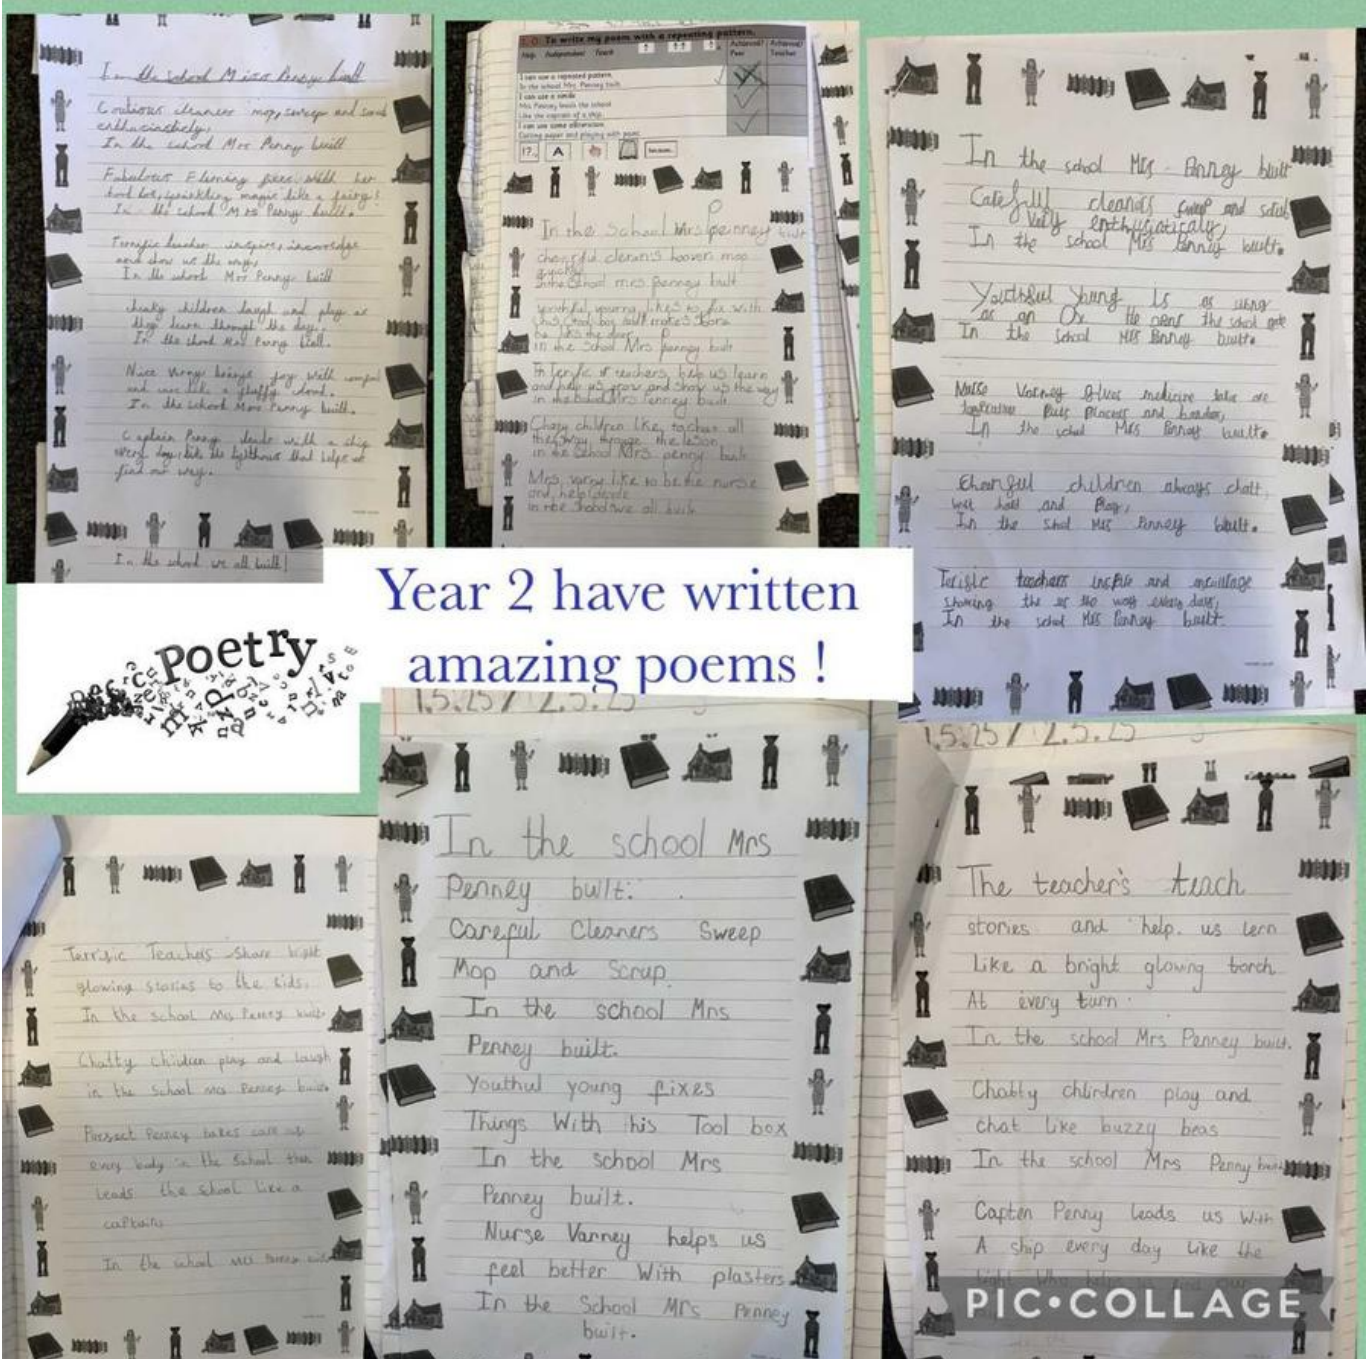 In the school Miss Penny built
Coutious cleaners mop, sweep and scrub
enthusiastically,
In the school Mrs Penny built
Fabulous Fleming fixes with her
tool box, sprinkling magic like a fairy!
In the school Mrs Penny built.
Terrific teacher inspires knowledge
and show us the way,
In the school Mrs Penny built
cheeky children laugh and play as
they learn through the day,
In the school Mrs Penny built.
Nice Varney brings joy with
and care like a fluffy cloud.
In the school Mrs Penny built.
Captain Penny leads with a ship
every day, like the lighthouse that helps us
find our way.
In the school we all built!
L.O: To write my poem with a repeating pattern.
Help Independent Teach
Achieved? Peer
Achieved? Teacher
I can use a repeated pattern.
In the school Mrs Penney built.
I can use a simile
Mrs Penney leads the school
Like the captain of a ship.
I can use some alliteration.
Cutting paper and playing with paint.
In the School Mrs Penney built
cheerful cleaners hoover mop
quickly
In the School mrs Penney built
youthful young likes to fix with
his tool box
In the School Mrs penney built
teachers, help us learn
and help us grow and show us the way
in the School Mrs Penney built
Chaty children like to chat all
the way through the
in the School Mrs penny built
Mrs, varney like to be the nurse
and help
in the School we all built
In the school Mrs Penney built
Careful cleaners sweep and scrub
very enthusiasticaly,
In the school Mrs Penney built.
Youthful Young is as
as an Ox He opens the school gate
In the school Mrs Penney built.
Nurse Varney gives medicine
In the school Mrs Penney built.
Chearful children always chatt,
and Play,
In the school Mrs Penney built.
teachers inspire and
showing the way every day,
In the school Mrs Penney built.
Poetry
Year 2 have written
amazing poems !
Terrific Teachers Share bright
glowing stories to the kids.
In the school Mrs Penney built.
Chatty children play and laugh
in the school mrs Penney built.
Persect Penney takes care of
every body in the School then
leads the school like a
captain
In the school mrs Penney built
1.5.25 / 2.5.25
In the school Mrs
Penney built.
Careful Cleaners Sweep
Mop and Scrup.
In the school Mrs
Penney built.
Youthul young fixes
Things With his Tool box
In the school Mrs
Penney built.
Nurse Varney helps us
feel better With plasters
In the School Mrs Penney
built.
1.5.25 / 2.5.25
The teacher's teach
stories and help us lern
Like a bright glowing torch
At every turn.
In the school Mrs Penney built.
Chatty chlirdren play and
chat like buzzy beas
In the school Mrs Penny built
Capten Penny leads us With
A ship every day like the
PIC•COLLAGE